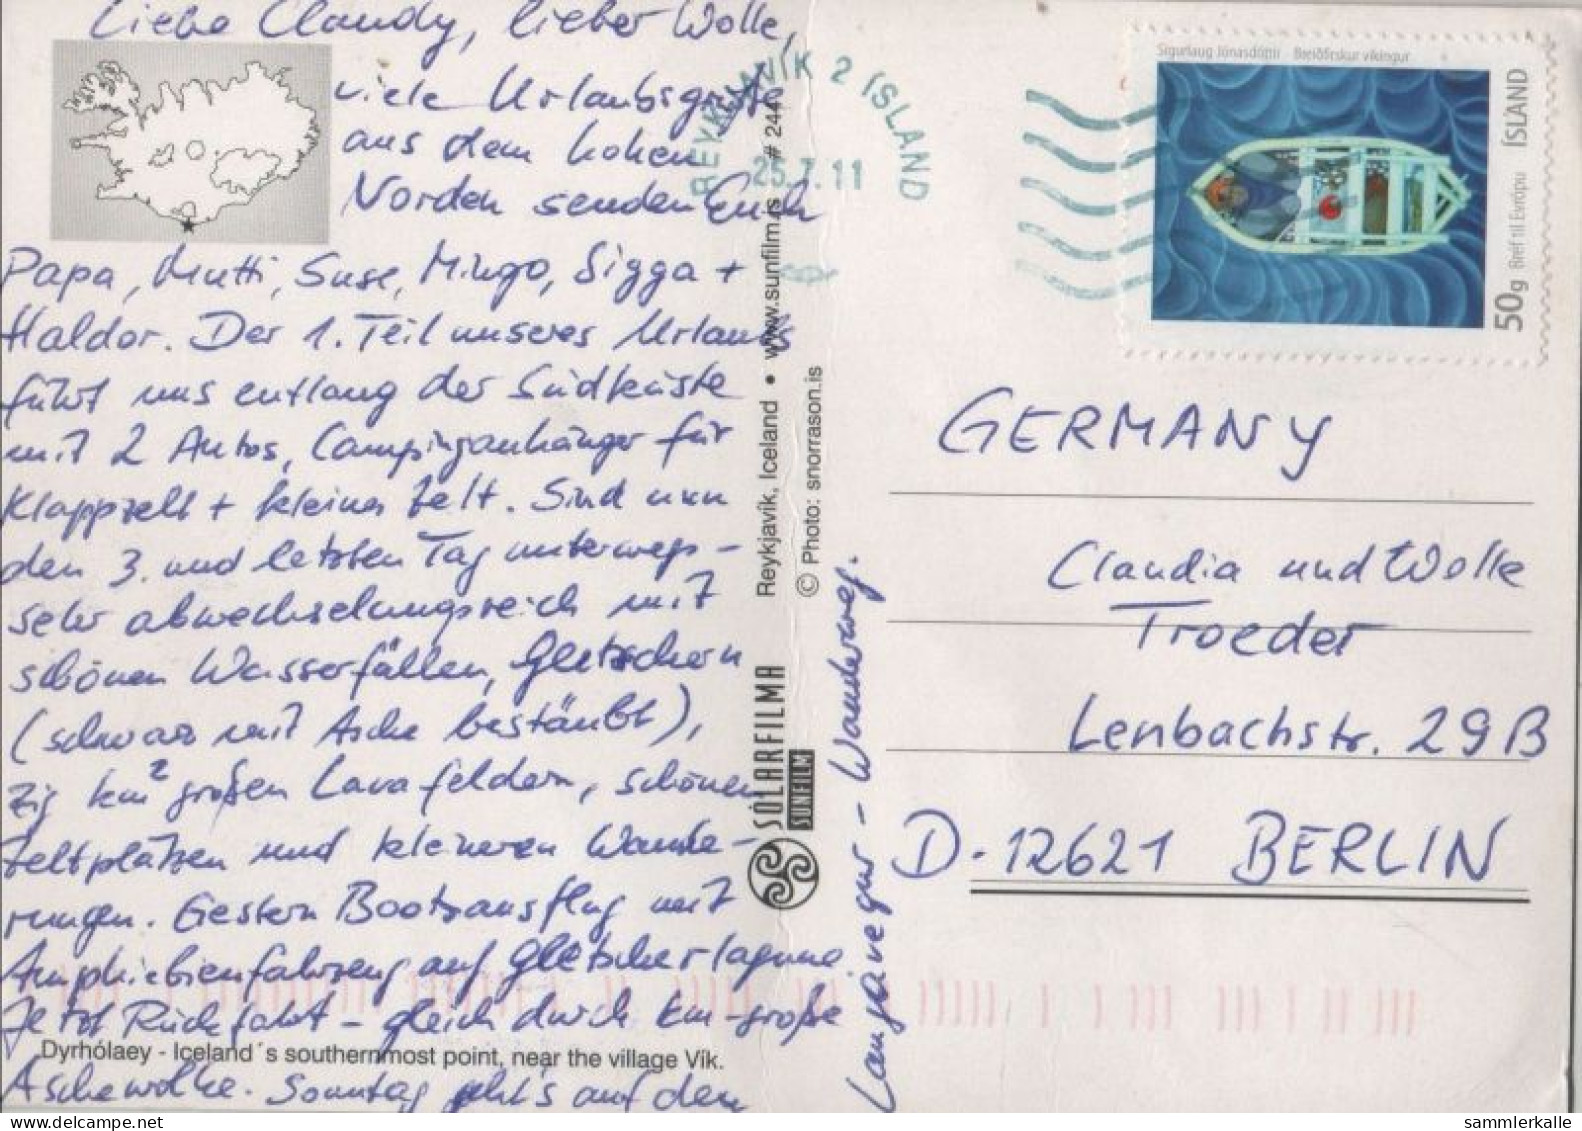 Liebe Claudy, lieber Wolle,
viele Urlaubsgrüße
aus dem hohen
Norden senden Euch
Papa, Mutti, Suse, Mingo, Sigga +
Haldor. Der 1. Teil unseres Urlaubs
führt uns entlang der Südküste
mit 2 Autos, Campinganhänger für
Klappzelt + kleines Zelt. Sind nun
den 3. und letzten Tag unterwegs -
sehr abwechselungsreich mit
schönen Wasserfällen, Gletschern
(schwarz mit Asche bestäubt),
zig km² großen Lavafeldern, schönen
Zeltplätzen und kleineren Wande-
rungen. Gestern Bootsausflug mit
Amphiebienfahrzeug auf Gletscherlagune
Jetzt Rückfahrt - gleich durch km-große
Aschewolke. Sonntag geht's auf den
Laugavegur - Wanderweg.
Dyrhólaey - Iceland´s southernmost point, near the village Vík.
SÓLARFILMA
SUNFILM
Reykjavík, Iceland • www.sunfilm.is # 244
© Photo: snorrason.is
REYKJAVÍK 2 ÍSLAND
25.7.11
Sigurlaug Jónasdóttir Breiðfirskur víkingur
ÍSLAND
Bréf til Evrópu
50g
GERMANY
Claudia und Wolle
Troeder
Lenbachstr. 29B
D-12621 BERLIN
sammlerkalle